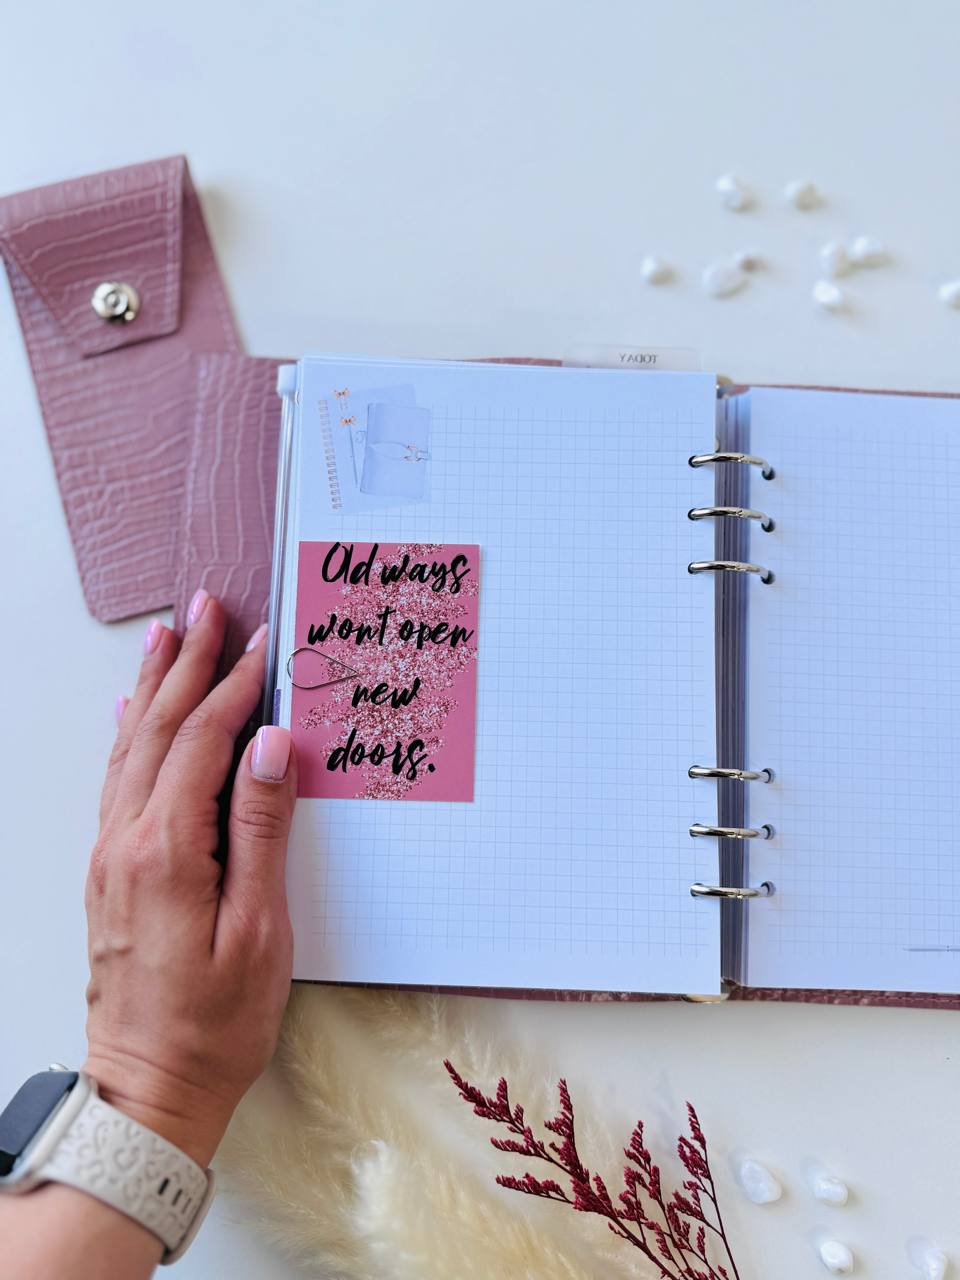 TODAY
Old ways
wont open
new
doors.